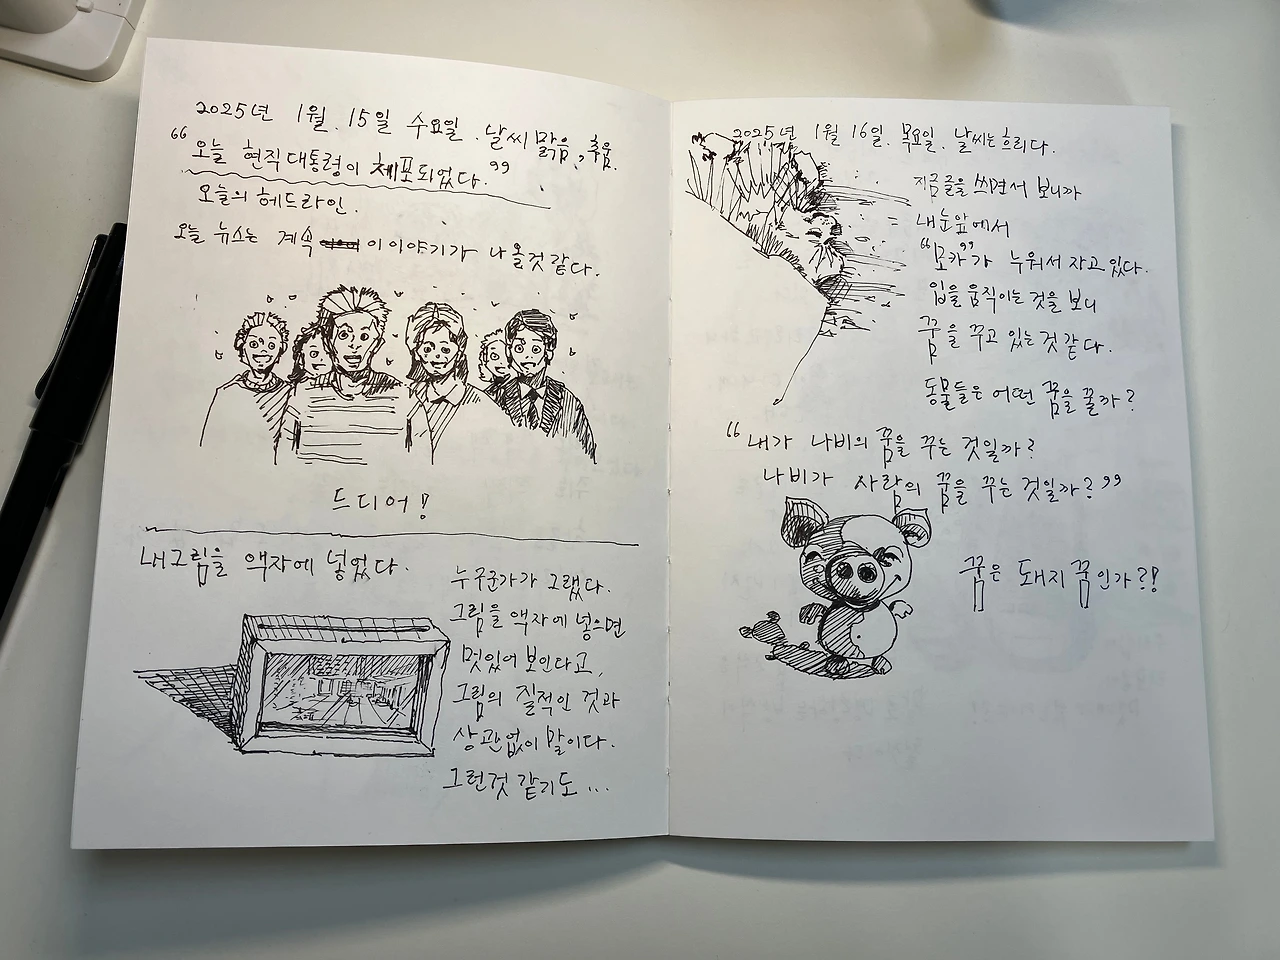 2025년 1월 15일 수요일. 날씨 맑음, 추움.
"오늘 현직 대통령이 체포되었다."
오늘의 헤드라인.
오늘 뉴스는 계속 이 이야기가 나올것 같다.
드디어!
내그림을 액자에 넣었다.
누구군가가 그랬다.
그림을 액자에 넣으면
멋있어 보인다고,
그림의 질적인 것과
상관없이 말이다.
그런것 같기도...
2025년 1월 16일. 목요일. 날씨는흐리다.
지금글을 쓰면서 보니까
내눈앞에서
"모카"가 누워서 자고있다.
입을 움직이는 것을 보니
꿈을 꾸고 있는것 같다.
동물들은 어떤 꿈을 꿀까?
"내가 나비의 꿈을 꾸는 것일까?
나비가 사람의 꿈을 꾸는 것일까?"
꿈은 돼지 꿈인가?!